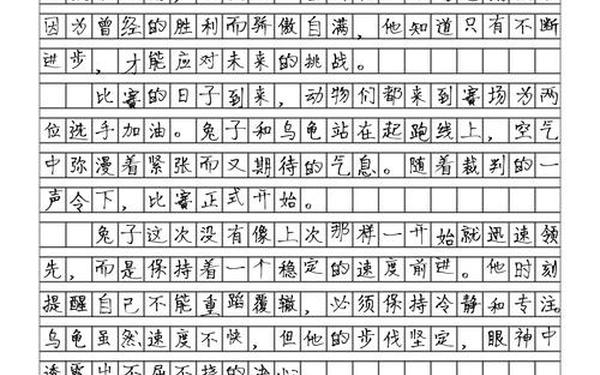 因为曾经的胜利而骄傲自满，他知道只有不断
进步，才能应对未来的挑战。
比赛的日子到来，动物们都来到赛场为两
位选手加油。兔子和乌龟站在起跑线上，空气
中弥漫着紧张而又期待的气息。随着裁判的一
声令下，比赛正式开始。
兔子这次没有像上次那样一开始就迅速领
先，而是保持着一个稳定的速度前进。他时刻
提醒自己不能重蹈覆辙，必须保持冷静和专注。
乌龟虽然速度不快，但他的步伐坚定，眼神中
透露出不屈不挠的决心